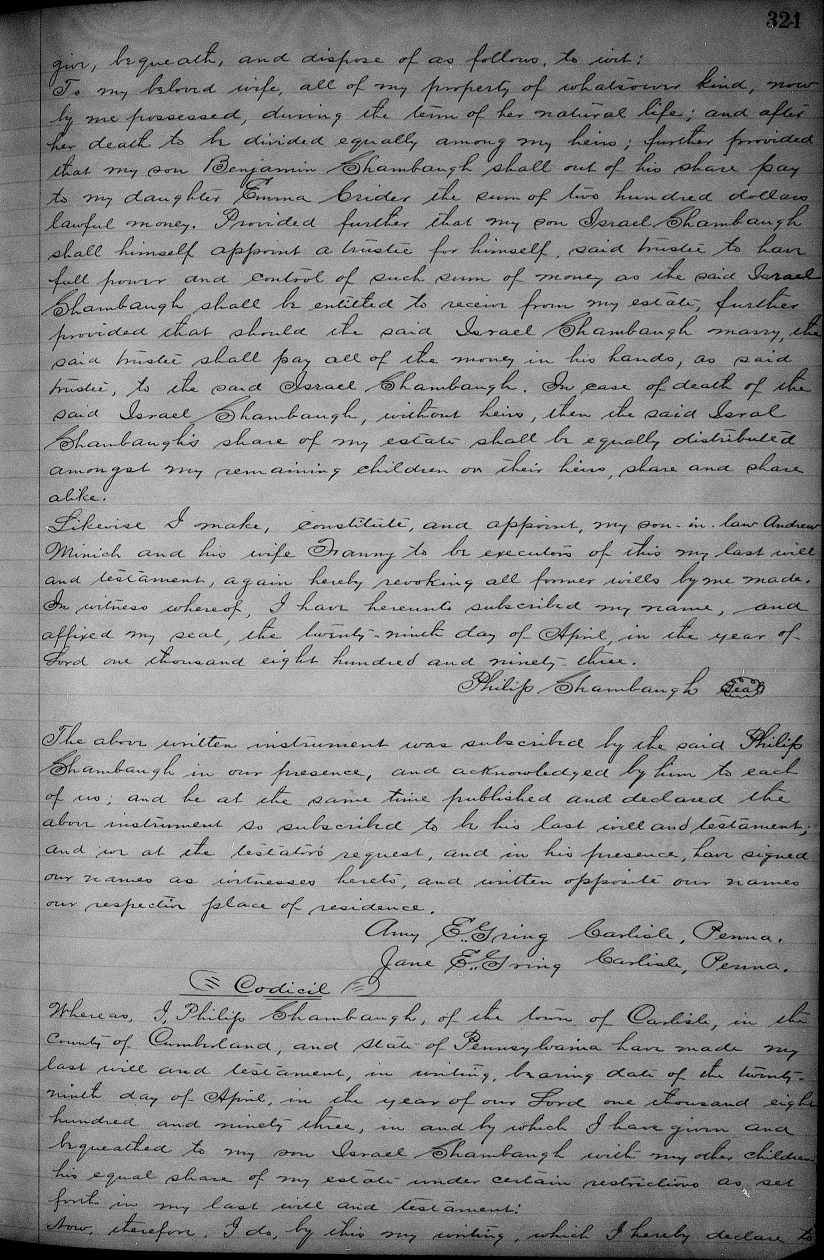 321
give, bequeath, and dispose of as follows, to wit:
To my beloved wife, all of my property of whatsoever kind, now
by me possessed, during the term of her natural life; and after
her death to be divided equally among my heirs; further provided
that my son Benjamin Shambaugh shall out of his share pay
to my daughter Emma Crider the sum of two hundred dollars
lawful money. Provided further that my son Israel Shambaugh
shall himself appoint a trustee for himself, said trustee to have
full power and control of such sum of money as the said Israel
Shambaugh shall be entitled to receive from my estate, further
provided that should the said Israel Shambaugh marry, the
said trustee shall pay all of the money in his hands, as said
trustee, to the said Israel Shambaugh. In case of death of the
said Israel Shambaugh, without heirs, then the said Isral
Shambaugh's share of my estate shall be equally distributed
amongst my remaining children or their heirs, share and share
alike.
Likewise I make, constitute, and appoint, my son-in-law Andrew
Minich and his wife Fanny to be executors of this my last will
and testament, again hereby revoking all former wills by me made.
In witness whereof, I have hereunto subscribed my name, and
affixed my seal, the twenty-ninth day of April, in the year of
Lord one thousand eight hundred and ninety three.
Philip Shambaugh Seal
The above written instrument was subscribed by the said Philip
Shambaugh in our presence, and acknowledged by him to each
of us; and he at the same time published and declared the
above instrument so subscribed to be his last will and testament;
and we at the testators request, and in his presence, have signed
our names as witnesses hereto, and written opposite our names
our respective place of residence.
Amy E. Gring Carlisle, Penna.
Jane E. Gring Carlisle, Penna.
Codicil
Whereas, I, Philip Shambaugh, of the town of Carlisle, in the
County of Cumberland, and state of Pennsylvania have made my
last will and testament, in writing, bearing date of the twenty-
ninth day of April, in the year of our Lord one thousand eight
hundred and ninety three, in and by which I have given and
bequeathed to my son Israel Shambaugh with my other children
his equal share of my estate under certain restrictions as set
forth in my last will and testament:
Now, therefore, I do, by this my writing, which I hereby declare to